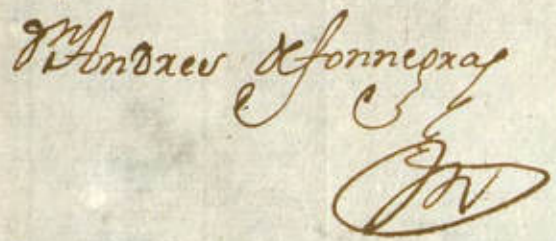 Dn Andres de fonnegra